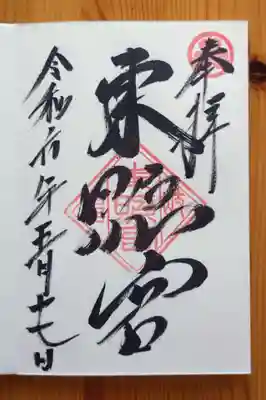 奉拝
東照宮
令和六年五月十七日